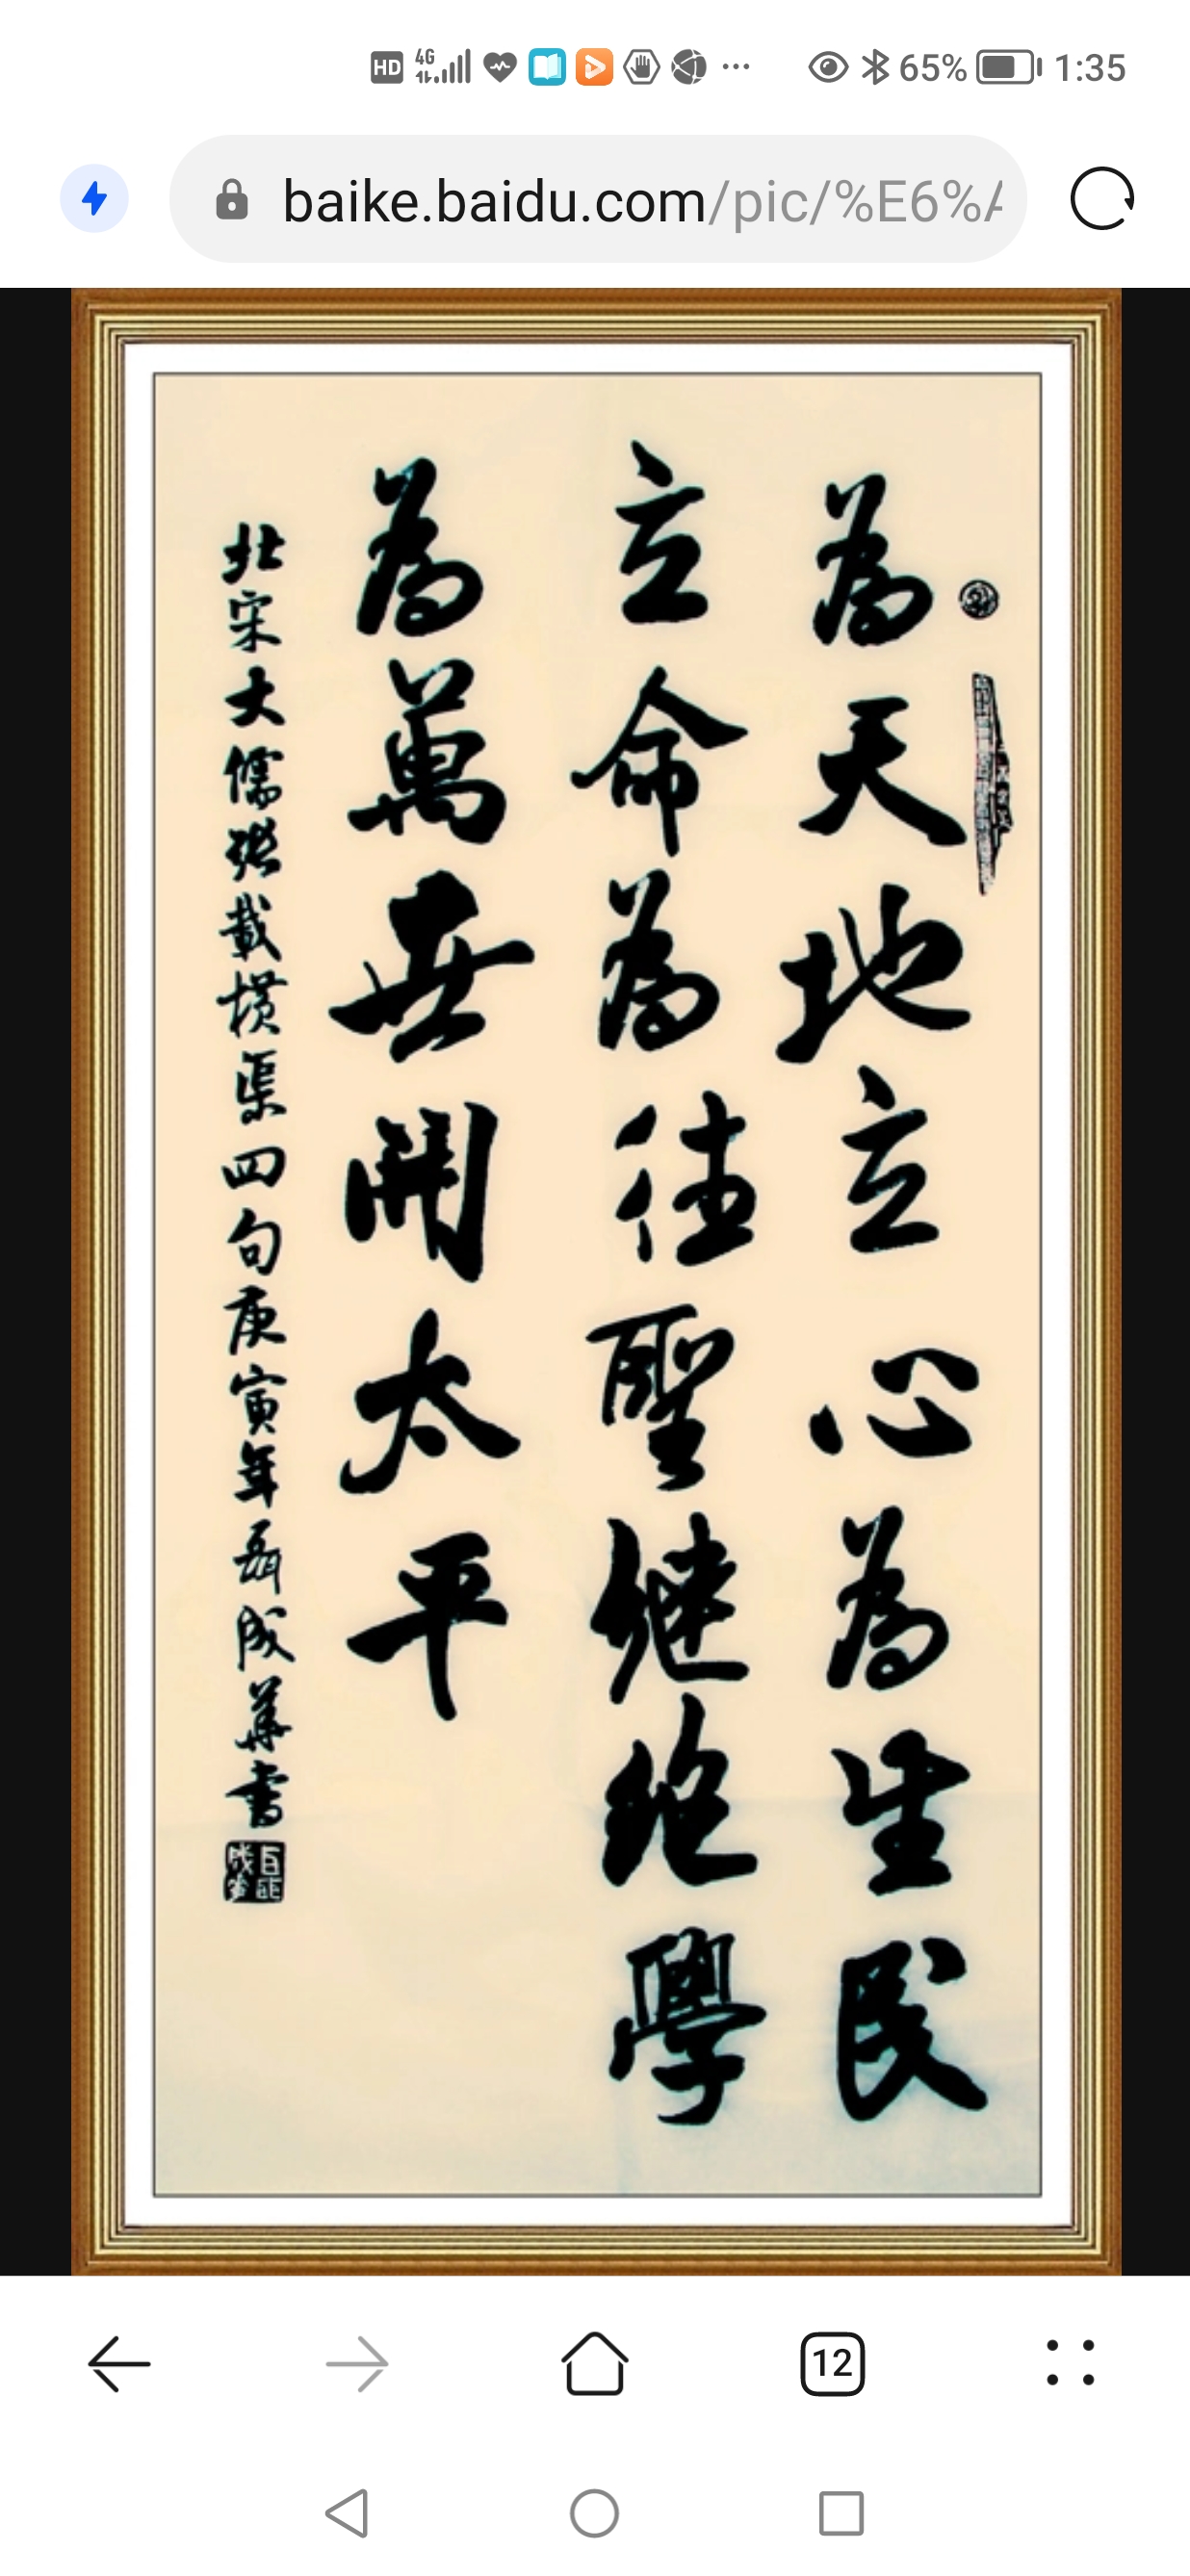 HD 4G 65% 1:35
baike.baidu.com/pic/%E6%A
為天地立心為生民
立命為往聖繼絕學
為萬世開太平
北宋大儒張載橫渠四句庚寅年聶成華書
12